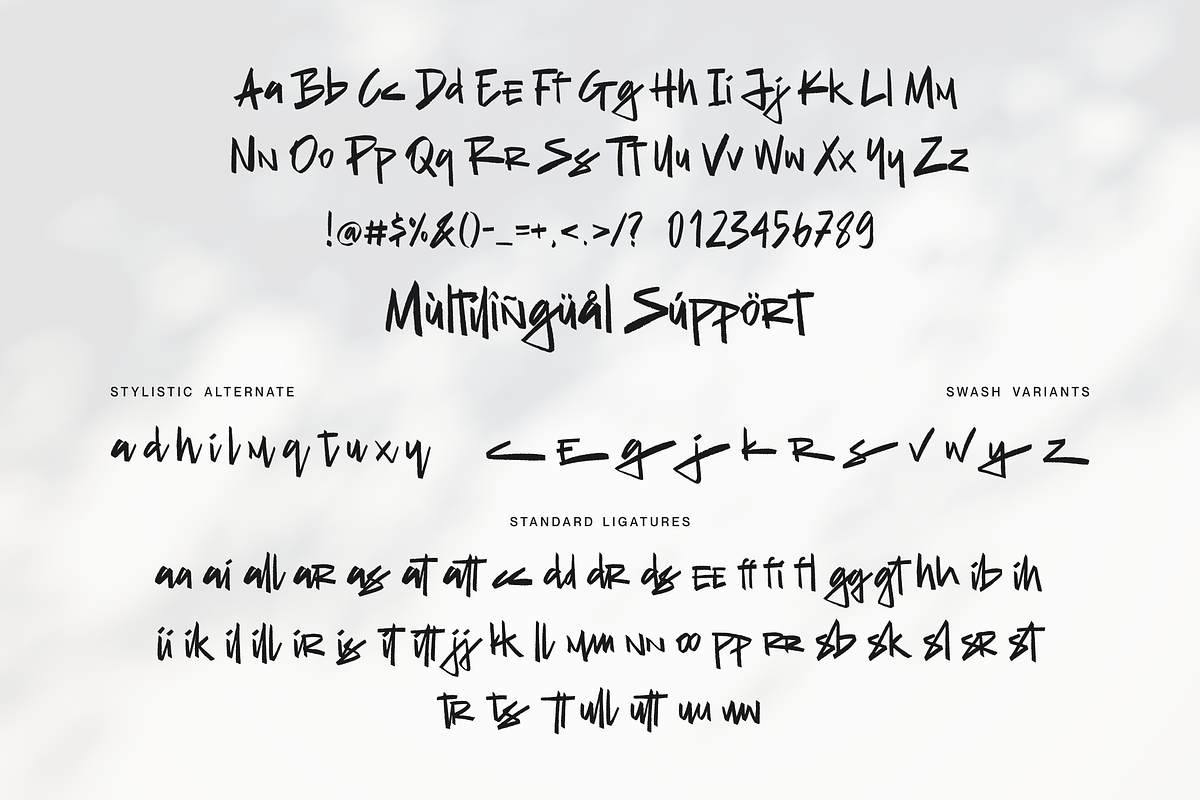 Aa Bb Cc Dd Ee Ff Gg Hh Ii Jj Kk Ll Mm
Nn Oo Pp Qq Rr Ss Tt Uu Vv Ww Xx Yy Zz
!@#$%&()-_=+,<.>/? 0123456789
Mùltîlîñgüål Súppört
STYLISTIC ALTERNATE
SWASH VARIANTS
a d h i l m q t u x y c e g j k r s v w y z
STANDARD LIGATURES
aa ai all ar as at att cc dd dr ds ee ff fi fl gg gt hh ib ih
ii ik il ill ir is it itt jj kk ll mm nn oo pp rr sb sk sl sr st
tr ts tt ull utt uu ww